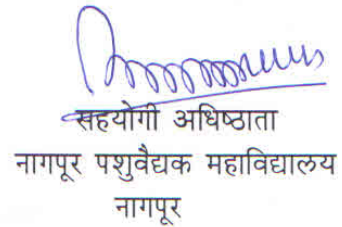 सहयोगी अधिष्ठाता
नागपूर पशुवैद्यक महाविद्यालय
नागपूर